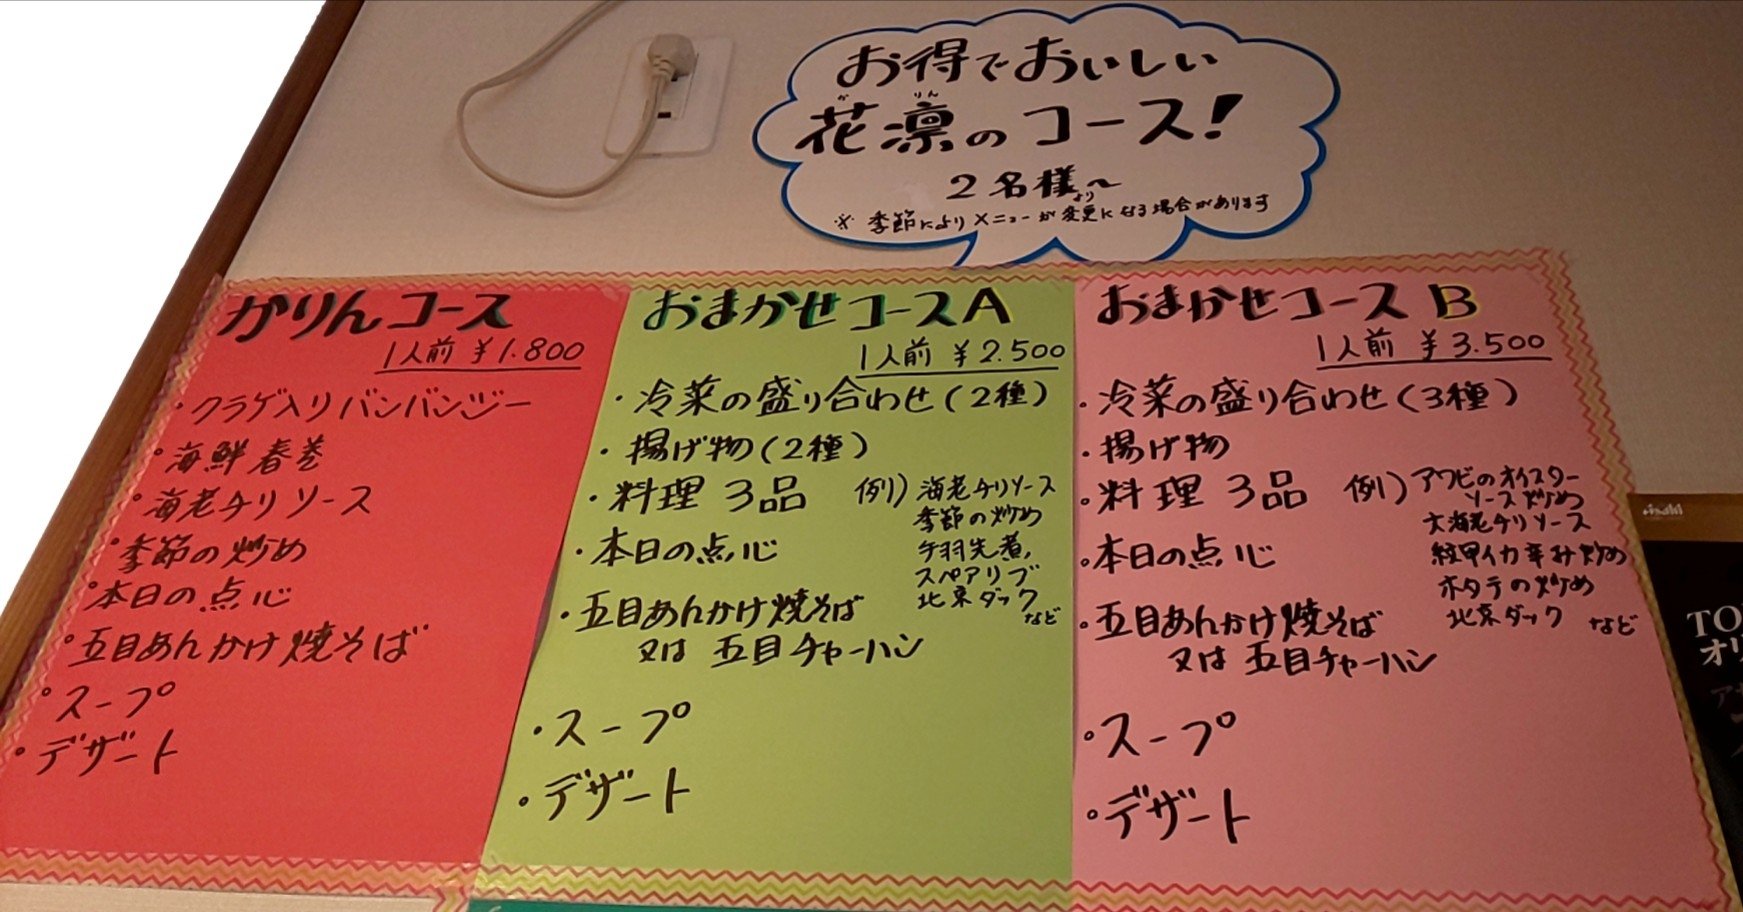 お得でおいしい
花凛のコース!
か りん
2名様〜
より
※季節によりメニューが変更になる場合があります
かりんコース
1人前 ¥1.800
・クラゲ入りバンバンジー
・海鮮春巻
・海老チリソース
・季節の炒め
・本日の点心
・五目あんかけ焼そば
・スープ
・デザート
おまかせコースA
1人前 ¥2.500
・冷菜の盛り合わせ(2種)
・揚げ物(2種)
・料理 3品 例)海老チリソース
季節の炒め
手羽先煮、
スペアリブ
北京ダック
など
・本日の点心
・五目あんかけ焼そば
又は 五目チャーハン
・スープ
・デザート
おまかせコース B
1人前 ¥3.500
・冷菜の盛り合わせ(3種)
・揚げ物
・料理 3品 例)アワビのオイスター
ソース炒め
大海老チリソース
紋甲イカ辛み炒め
ホタテの炒め
北京ダック など
・本日の点心
・五目あんかけ焼そば
又は 五目チャーハン
・スープ
・デザート
Asahi
TO
オリ